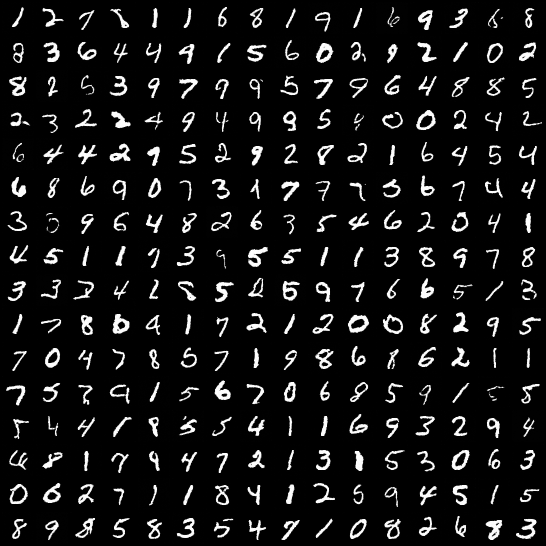 1 2 7 8 1 1 6 8 1 9 1 6 9 3 6 8
8 3 6 4 4 9 1 5 6 0 2 9 2 1 0 2
8 2 5 3 9 7 9 9 5 7 9 6 4 8 8 5
2 3 2 2 4 9 4 9 9 5 4 0 0 2 4 2
6 4 4 2 9 5 2 9 2 8 2 1 6 4 5 4
6 8 6 9 0 7 3 1 7 7 7 5 6 7 4 4
3 5 9 6 4 8 2 6 3 5 4 6 2 0 4 1
4 5 1 1 7 3 9 5 5 1 1 3 8 9 7 8
3 3 3 4 2 8 5 2 5 9 7 6 6 5 1 3
1 7 8 0 4 1 7 2 1 2 0 0 8 2 9 5
7 0 4 7 8 5 7 1 9 8 6 8 6 2 1 1
7 5 7 9 1 5 6 7 0 6 8 5 9 1 5 8
5 4 4 1 8 5 5 4 1 1 6 9 3 2 9 4
4 8 1 7 9 4 7 2 1 3 1 5 3 0 6 3
0 6 2 7 1 1 8 4 1 2 5 9 4 5 1 5
8 9 8 5 8 3 5 4 7 1 0 8 2 6 8 3